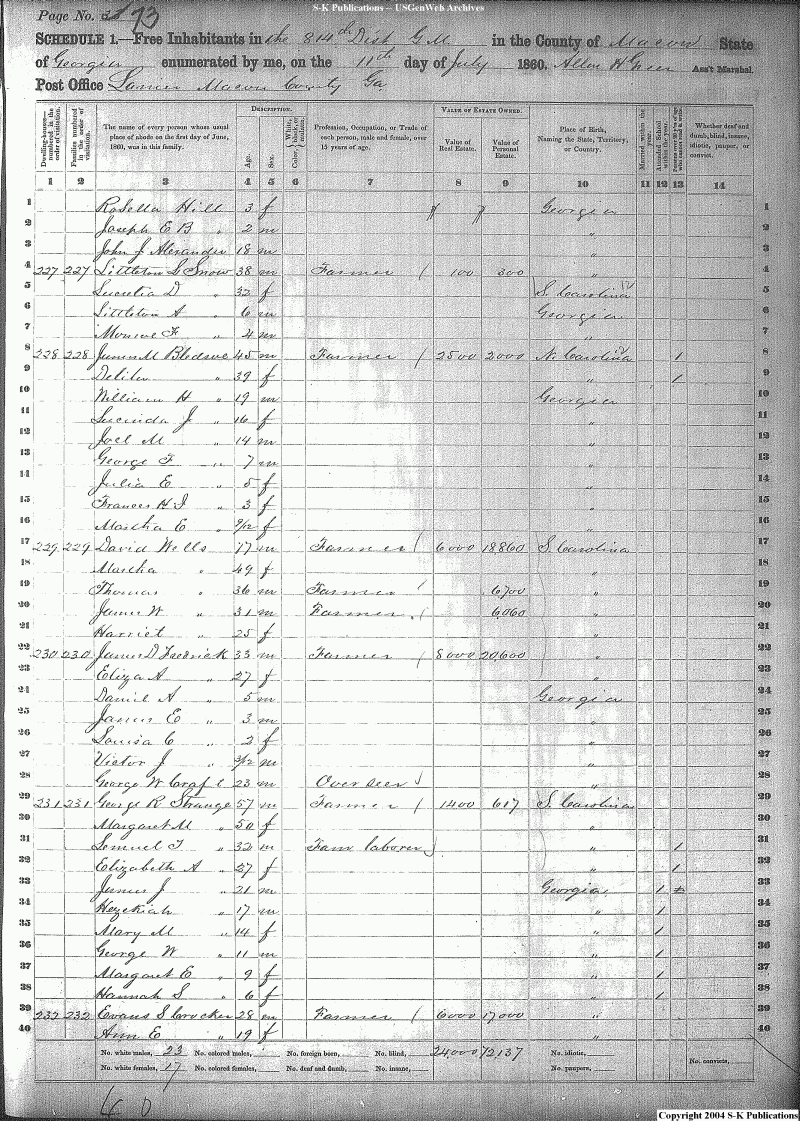 S-K Publications – USGenWeb Archives
Page No. 73
SCHEDULE 1.—Free Inhabitants in the 814th Dist G M in the County of Macon State
of Georgia enumerated by me, on the 11th day of July 1860. Ass't Marshal.
Post Office Lanier Macon County Ga
Dwelling-houses—numbered in the order of visitation.
Families numbered in the order of visitation.
The name of every person whose usual place of abode on the first day of June, 1860, was in this family.
DESCRIPTION.
Age.
Sex.
Profession, Occupation, or Trade of each person, male and female, over 15 years of age.
VALUE OF ESTATE OWNED.
Value of Real Estate.
Value of Personal Estate.
Place of Birth, Naming the State, Territory, or Country.
Married within the year.
Attended School within the year.
Whether deaf and dumb, blind, insane, idiotic, pauper, or convict.
1 2 3 4 5 6 7 8 9 10 11 12 13 14
1 Rosella Hill 3 f Georgia 1
2 Joseph E B " 2 m " 2
3 John J Alexander 18 m " 3
4 227 227 Littleton L Snow 38 m Farmer 100 300 " 4
5 Lucretia D " 32 f S. Carolina 5
6 Littleton A " 6 m Georgia 6
7 Monroe F " 4 m " 7
8 228 228 James M Bledsoe 45 m Farmer 2500 2000 N. Carolina 1 8
9 Delila " 39 f " 1 9
10 William H " 19 m Georgia 10
11 Lucinda J " 16 f " 11
12 Joel M " 14 m " 12
13 George F " 7 m " 13
14 Julia E " 5 f " 14
15 Frances H J " 3 f " 15
16 Martha E " 9/12 f " 16
17 229 229 David Wells 77 m Farmer 6000 18860 S. Carolina 17
18 Martha " 49 f " 18
19 Thomas " 36 m Farmer 6700 " 19
20 James W " 31 m Farmer 6060 " 20
21 Harriet " 25 f " 21
22 230 230 James D Fredrick 33 m Farmer 8000 20600 " 22
23 Eliza A " 27 f " 23
24 Daniel A " 5 m Georgia 24
25 James E " 3 m " 25
26 Louisa C " 2 f " 26
27 Victor J " 3/12 m " 27
28 George W Craft 23 m Overseer " 28
29 231 231 George R Strange 57 m Farmer 1400 617 S. Carolina 29
30 Margaret M " 50 f " 30
31 Lemuel T " 32 m Farm laborer " 1 31
32 Elizabeth A " 27 f " 1 32
33 James J " 21 m Georgia 1 33
34 Hezekiah " 17 m " 1 34
35 Mary M " 14 f " 1 35
36 George W " 11 m " 1 36
37 Margaret E " 9 f " 1 37
38 Hannah S " 6 f " 1 38
39 232 232 Evans S Crocker 28 m Farmer 6000 17000 " 39
40 Ann E " 19 f " 40
No. white males, 23 No. colored males, No. foreign born, No. blind, 24000 72137 No. idiotic,
No. white females, 17 No. colored females, No. deaf and dumb, No. insane, No. paupers, No. convicts,
40
Copyright 2004 S-K Publications